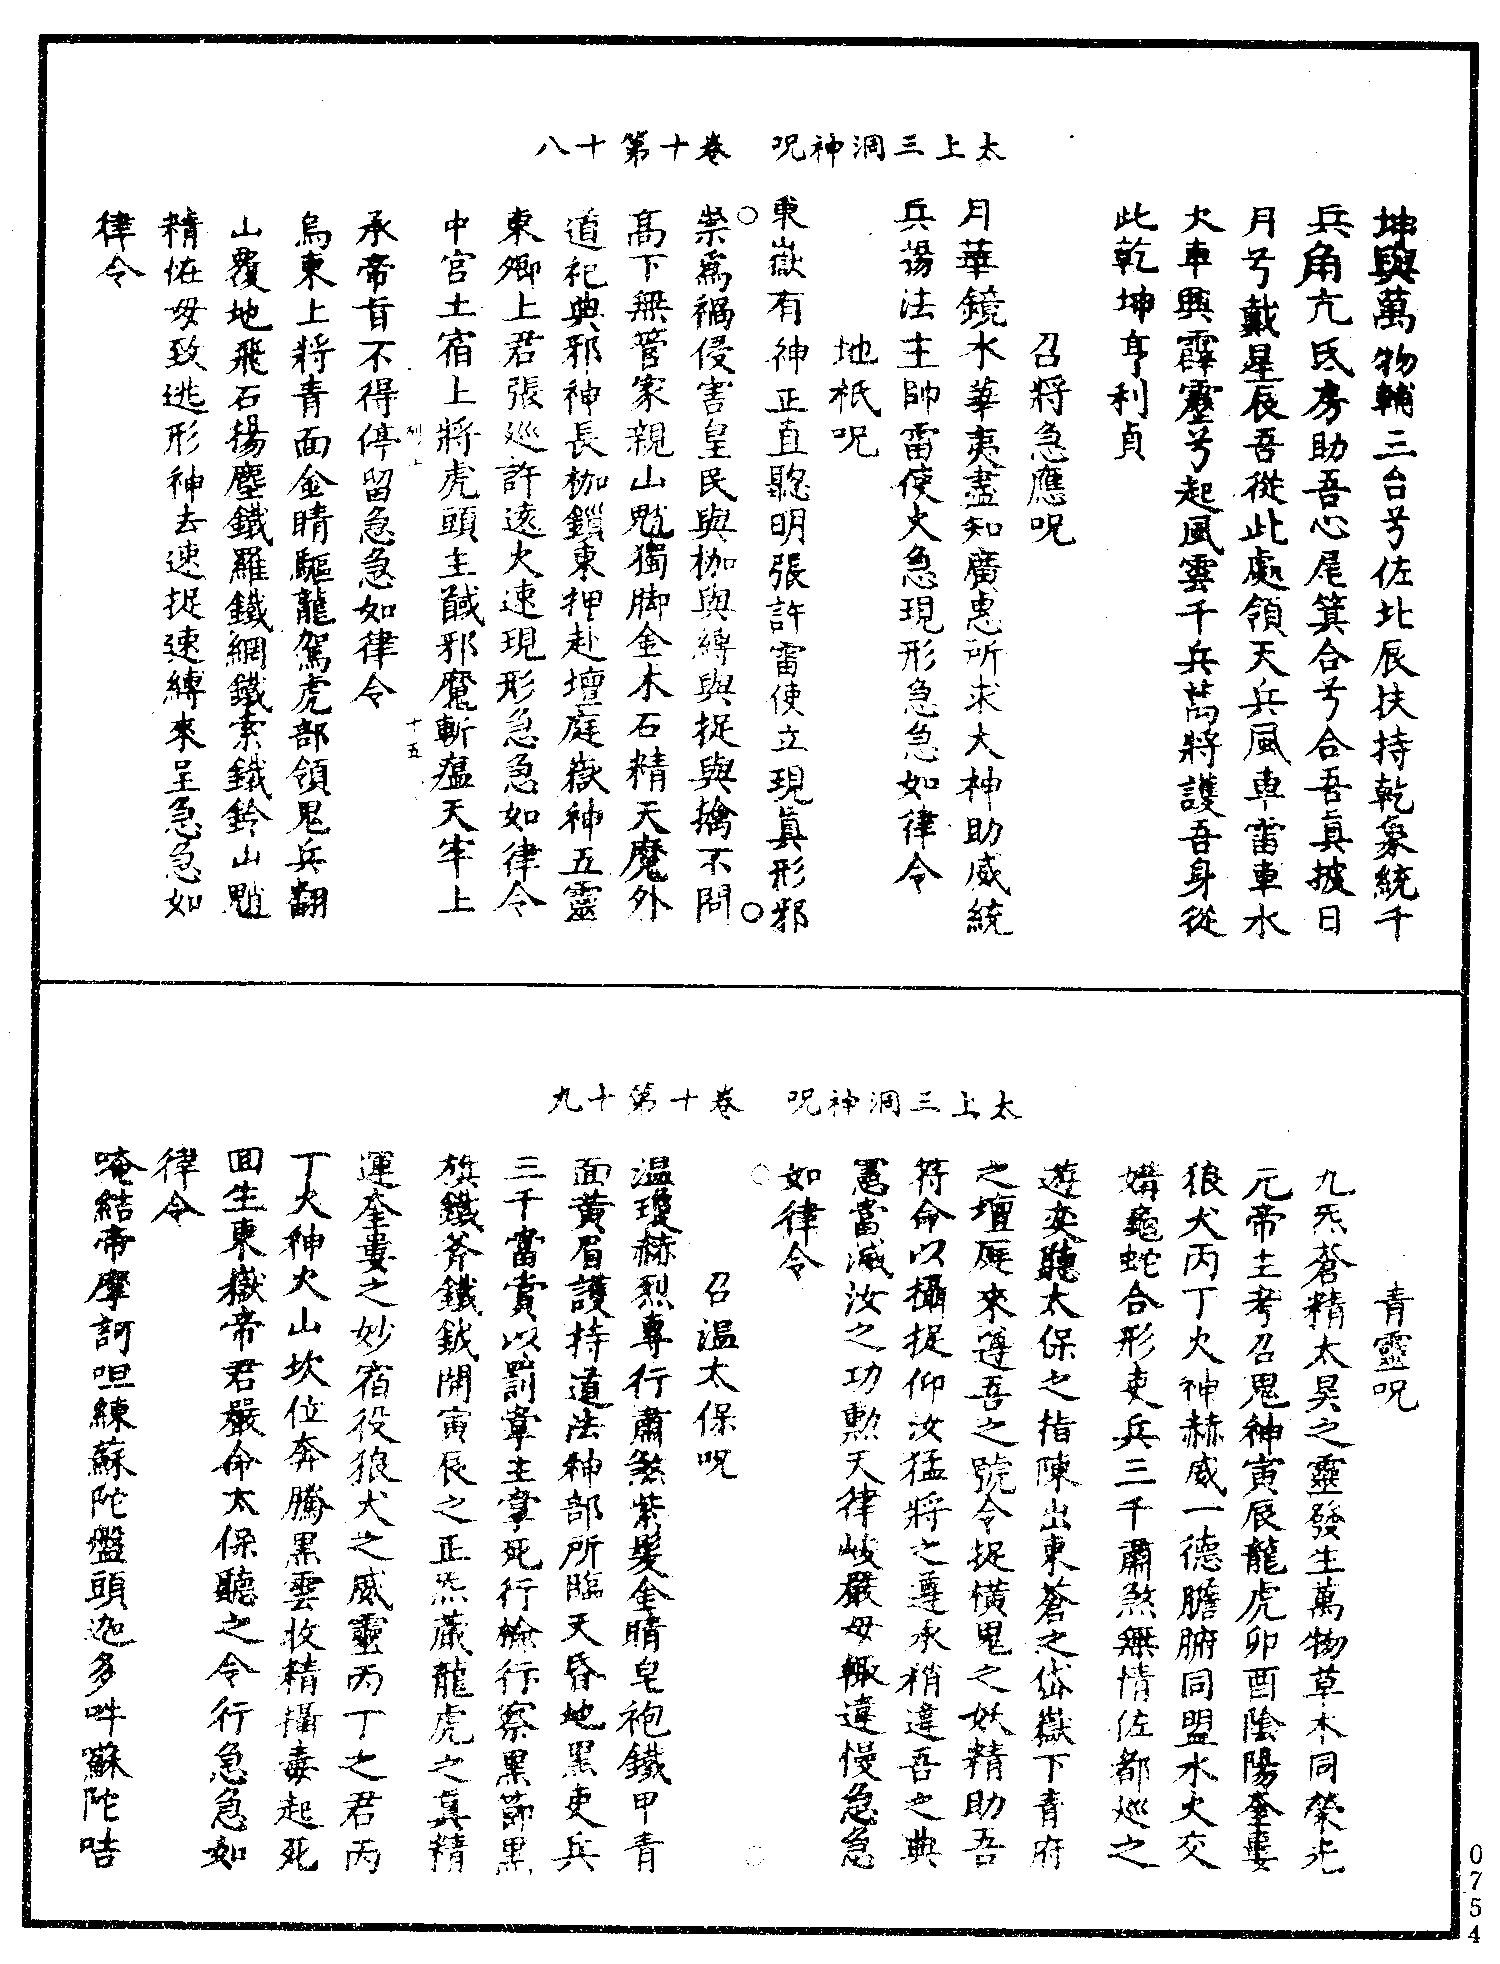 太上三洞神呪　卷十第十八
坤與萬物輔三台兮佐北辰扶持乾象統千
兵角亢氐房助吾心尾箕合兮合吾真披日
月兮戴星辰吾從此處領天兵風車雷車水
火車興霹靂兮起風雲千兵萬將護吾身從
此乾坤亨利貞
召將急應呪
月華鏡水華夷盡知廣惠所求大神助威統
兵蕩法主帥雷使火急現形急急如律令
地祇呪
東嶽有神正直聰明張許雷使立現真形邪
祟為禍侵害皇民與枷與縛與捉與擒不問
高下無管家親山魈獨脚金木石精天魔外
道祀典邪神長枷鎖東押赴壇庭嶽神五靈
東卿上君張巡許遠火速現形急急如律令
中宮土宿上將虎頭主馘邪魔斬瘟天牢上
承帝旨不得停留急急如律令
十五
烏東上將青面金睛驅龍駕虎部領鬼兵翻
山覆地飛石揚塵鐵羅鐵網鐵索鐵鈴山魈
精恠毋致逃形神去速捉速縛來呈急急如
律令
太上三洞神呪　卷十第十九
青靈呪
九炁蒼精太昊之靈發生萬物草木同榮光
元帝主考召鬼神寅辰龍虎卯酉陰陽奎婁
狼犬丙丁火神赫威一德膽腑同盟水火交
媾龜蛇合形吏兵三千肅煞無情佐都巡之
遊奕聽太保之指陳出東蒼之岱嶽下青府
之壇庭來遵吾之號令捉橫鬼之妖精助吾
符命以攝捉仰汝猛將之遵承稍違吾之典
憲當滅汝之功勲天律峻嚴毋輙違慢急急
如律令
召温太保呪
温瓊赫烈專行肅煞紫髮金睛皂袍鐵甲青
面黄眉護持道法神部所臨天昏地黑吏兵
三千當賞以罰掌主掌死行檢行察黑節黑
旗鐵斧鐵鉞開寅辰之正炁蕆龍虎之真精
運奎婁之妙宿役狼犬之威靈丙丁之君丙
丁火神火山坎位奔騰黑雲收精攝毒起死
回生東嶽帝君嚴命太保聽之令行急急如
律令
唵結帝摩訶呾練蘇陀盤頭迦多吽蘇陀咭
0754